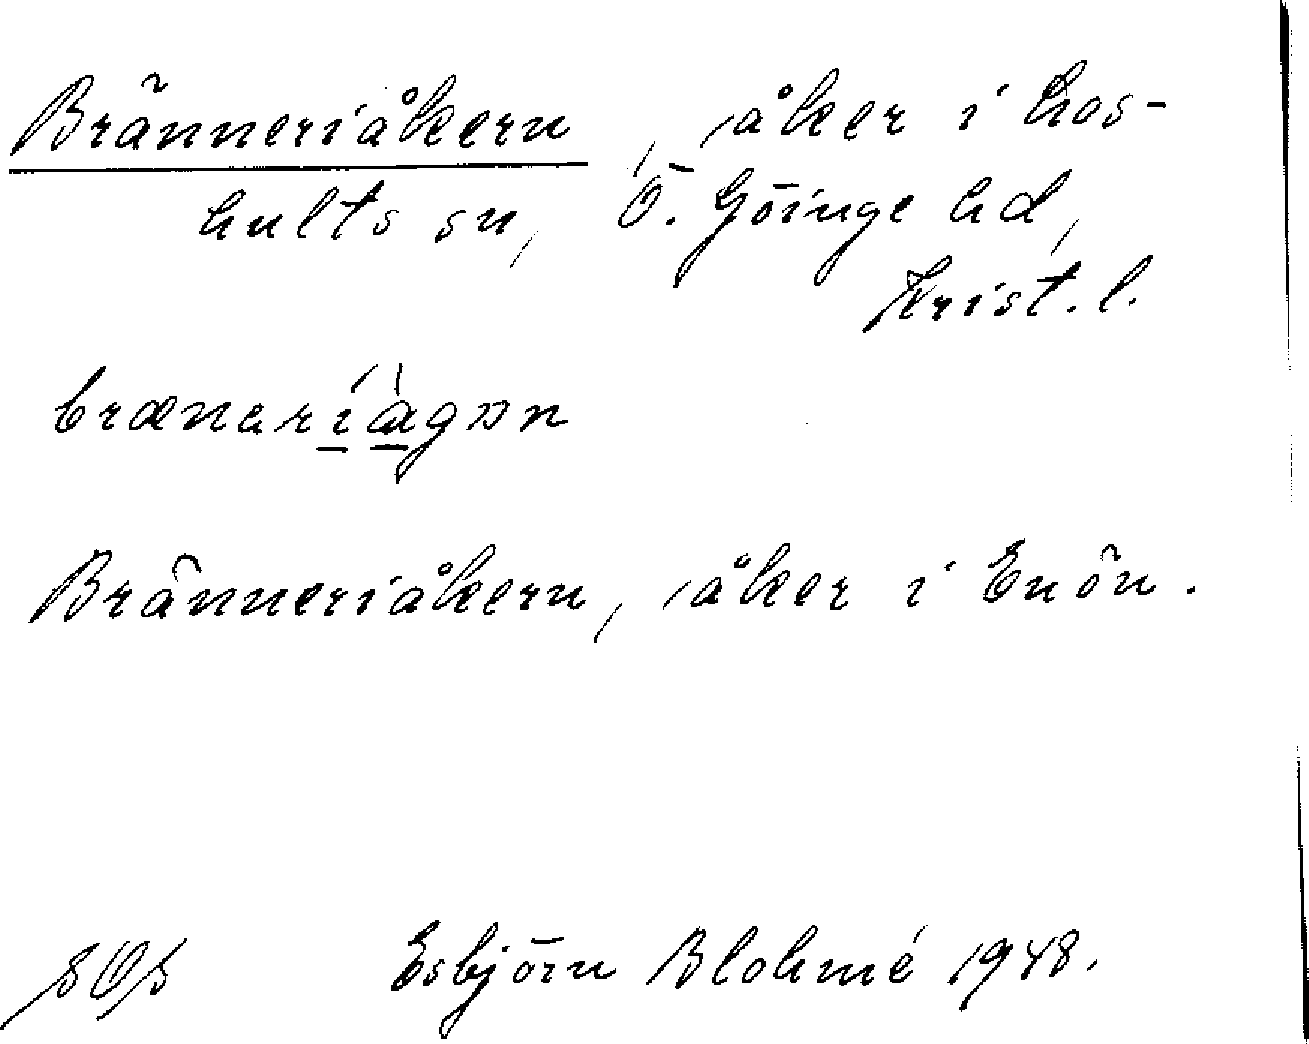 Bränneriåkern, åker i Los-
hults sn, Ö. Göinge hd,
Krist. l.
Bränneriåkern, åker i Enön.
Esbjörn Blohmé 1948.